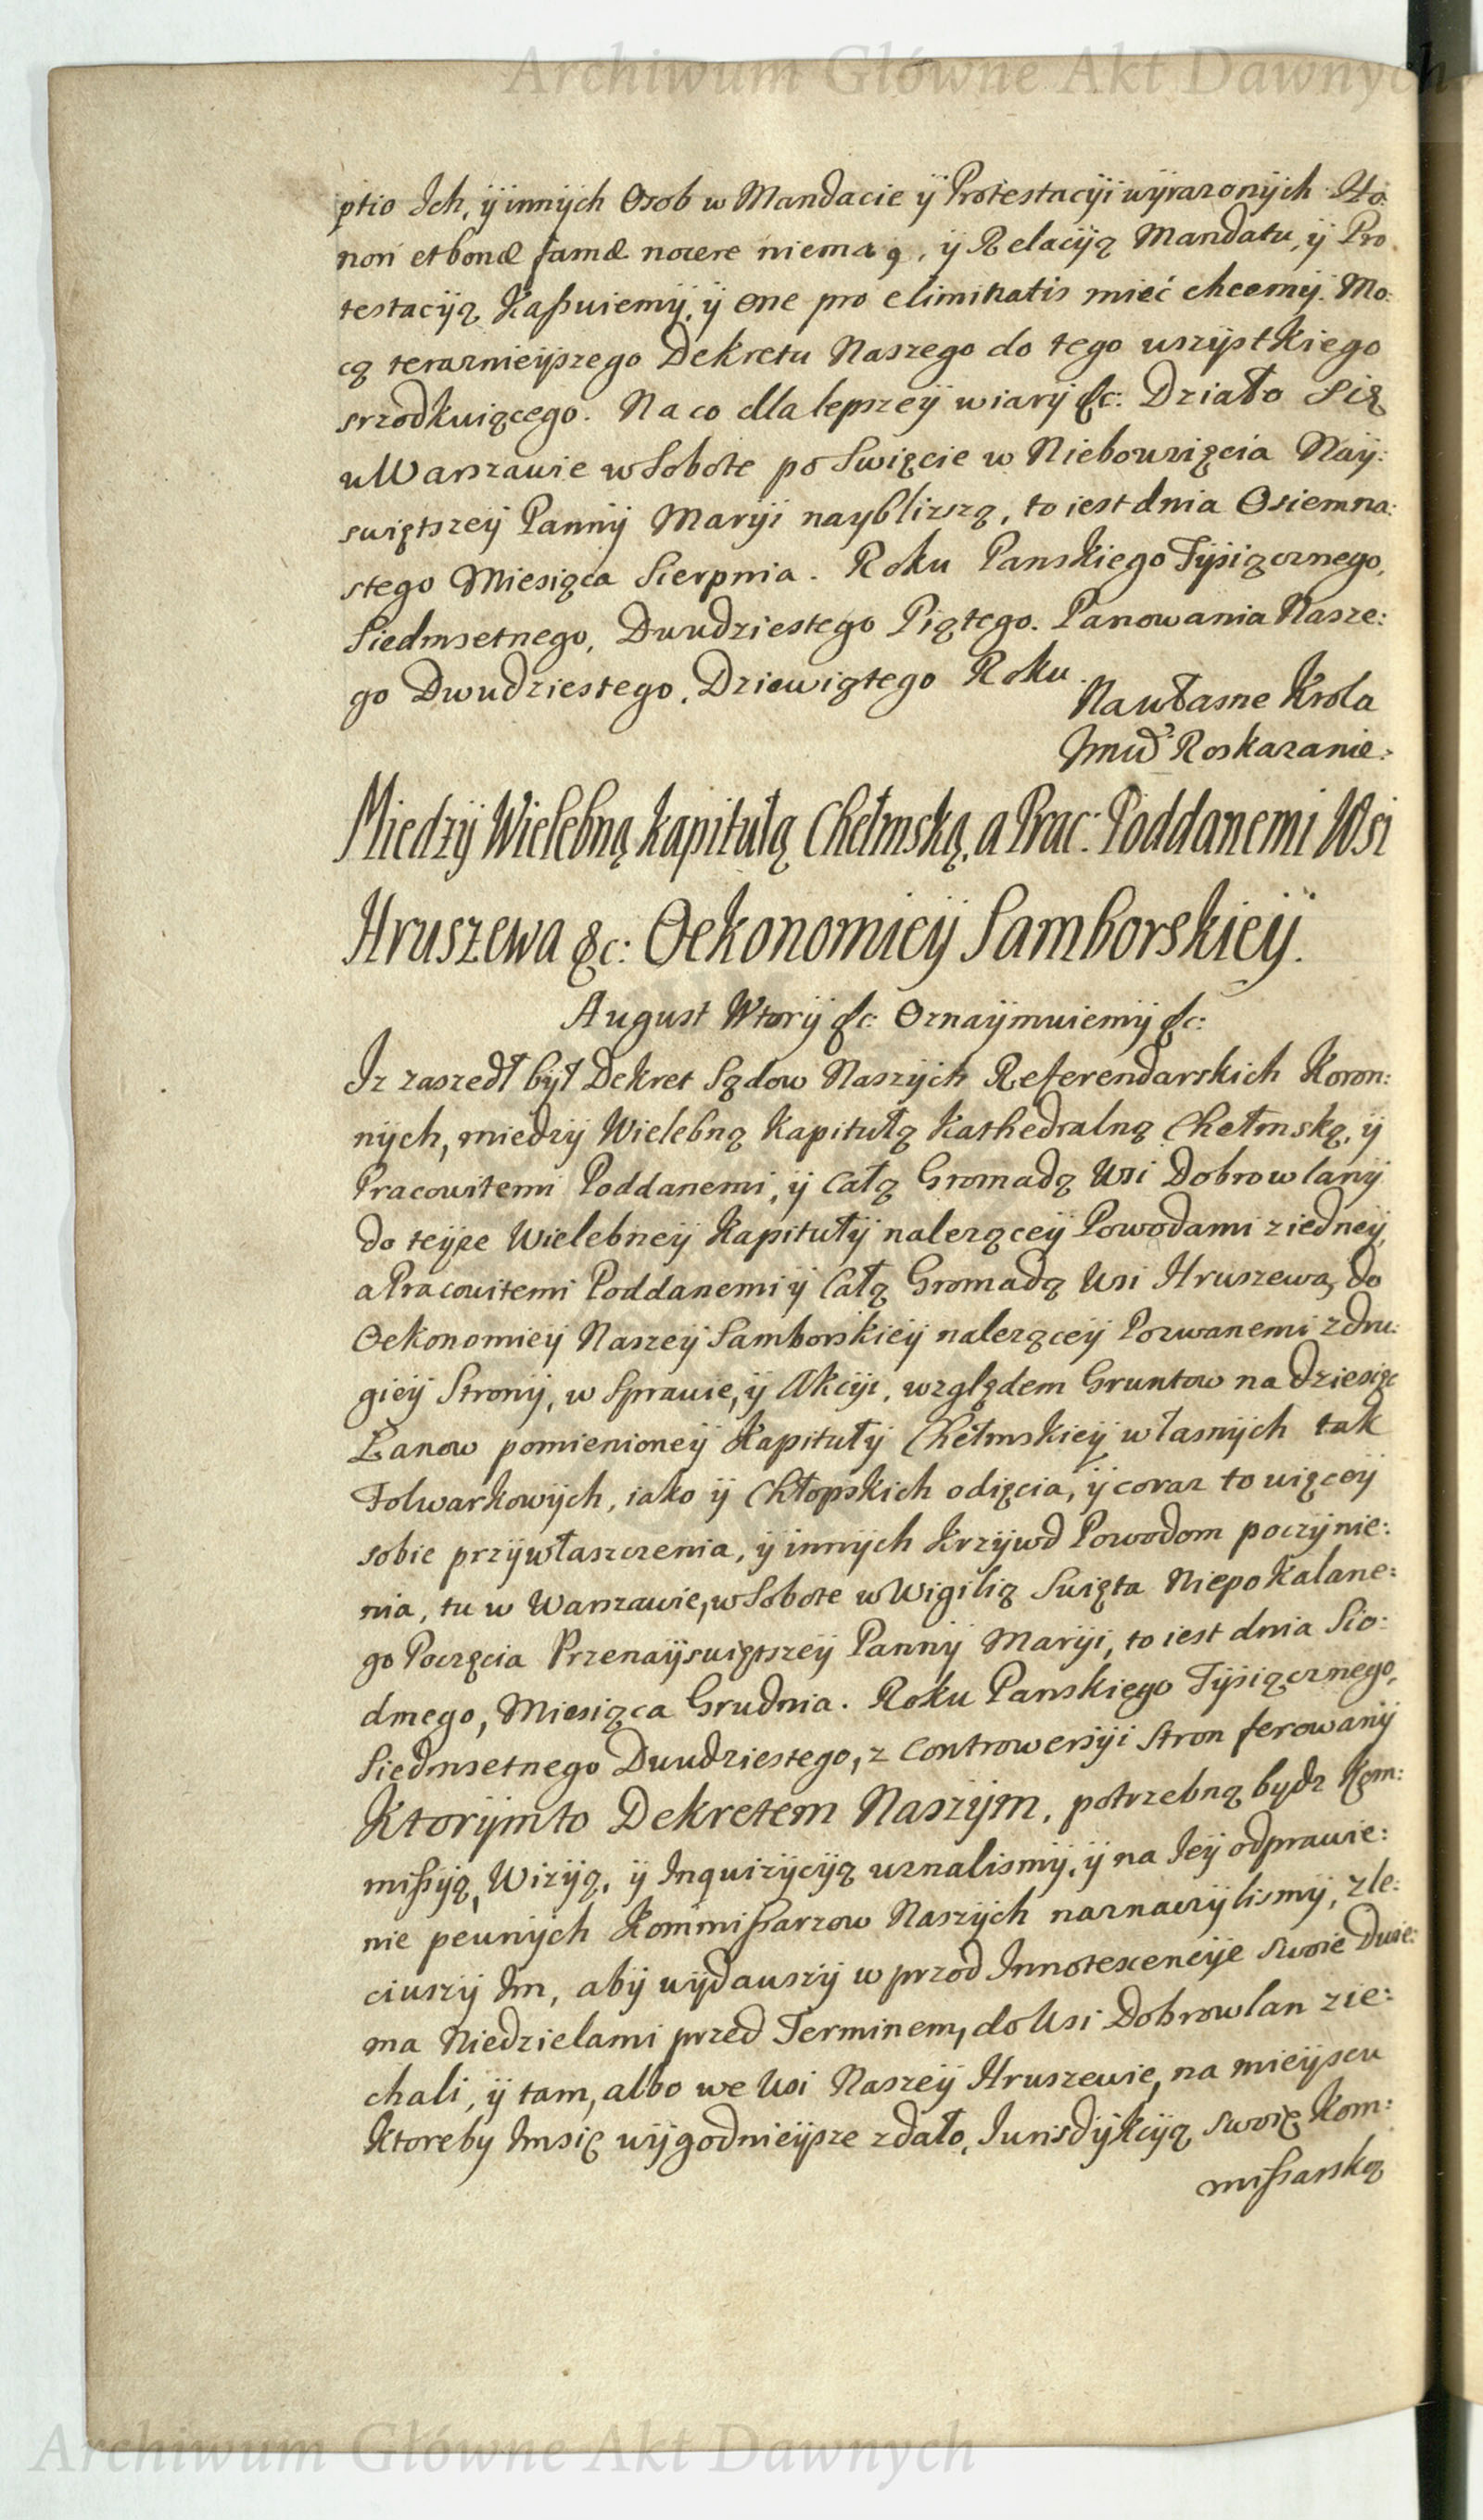 Archiwum Główne Akt Dawnych
ptio Ich, ÿ innÿch Osob w Mandacie ÿ Protestacÿi wÿrazonÿch Ho:
nori et bonæ famæ nocere niemaią, ÿ Relacÿą Mandatu, ÿ Pro
testacÿą Kaßuiemÿ, ÿ one pro eliminatis mieć chcemÿ. Mo:
cą teraznieÿszego Dekretu Naszego do tego wszÿstkiego
srzodkuiącego. Na co dla lepszeÿ wiarÿ &c: Działo Się
w Warszawie w Sobote po Swięcie w Niebowzięcia Naÿ:
swiętszeÿ Pannÿ Marÿi nayblizszą, to iest dnia Osiemna:
stego Miesiąca Sierpnia. Roku Panskiego Tÿsiącznego,
Siedmsetnego, Dwudziestego Piątego. Panowania Nasze:
go Dwudziestego, Dziewiątego Roku.
Na własne Krola
Jmći Roskazanie:
Miedzÿ Wielebną kapitułą Chełmską, a Prac: Poddanemi Wsi
Hruszewa &c: Oekonomieÿ Samborskieÿ.
August Wtorÿ &c: Oznaÿmuiemÿ &c:
Iz zaszedł bÿł Dekret Sądow Naszÿch Referendarskich Koron:
nÿch, miedzÿ Wielebną Kapitułą Kathedralną Chełmską, ÿ
Pracowitemi Poddanemi, ÿ całą Gromadą Wsi Dobrowlanÿ
do teÿze Wielebneÿ Kapitułÿ nalezączeÿ Powodami z iedneÿ,
a Pracowitemi Poddanemi ÿ Całą Gromadą Wsi Hruszewa, do
Oekonomieÿ Naszeÿ Samborskieÿ nalezącey Pozwanemi z dru:
gieÿ Stronÿ, w Sprawie, ÿ Akcÿi, względem Gruntow na dziesięc
Łanow pomienioneÿ Kapitułÿ Chełmskieÿ własnÿch tak
Folwarkowÿch, iako ÿ Chłopskich odięcia, ÿ coraz to więceÿ
sobie przÿwłaszczenia, ÿ innÿch Krzÿwd Powodom poczÿnie:
nia, tu w Warszawie, w Sobote w Wigilią Swięta Niepokalane:
go Poczęcia Przenaÿswiętszeÿ Pannÿ Marÿi, to iest dnia Sio:
dmego, Miesiąca Grudnia. Roku Panskiego Tÿsiącznego,
Siedmsetnego Dwudziestego, z Controwersÿi Stron ferowanÿ
Ktorÿmto Dekretem Naszÿm, potrzebną bydz Kom:
mißÿą, Wizÿą, ÿ Inquizÿcÿą uznalismÿ, ÿ na Ieÿ odprawie:
nie pewnÿch Kommißarzow Naszÿch naznaczÿlismÿ, zle:
ciwszÿ Im, abÿ wÿdawszÿ w przod Innotescencÿe swoie Dwie:
ma Niedzielami przed Terminem, do Wsi Dobrowlan zie:
chali, ÿ tam, albo we Wsi Naszeÿ Hruszewie, na mieÿscu
Ktoreby Imsię wÿgodnieÿsze zdało, Iurisdÿkcÿą swoię Kom:
mißarską
Archiwum Główne Akt Dawnych